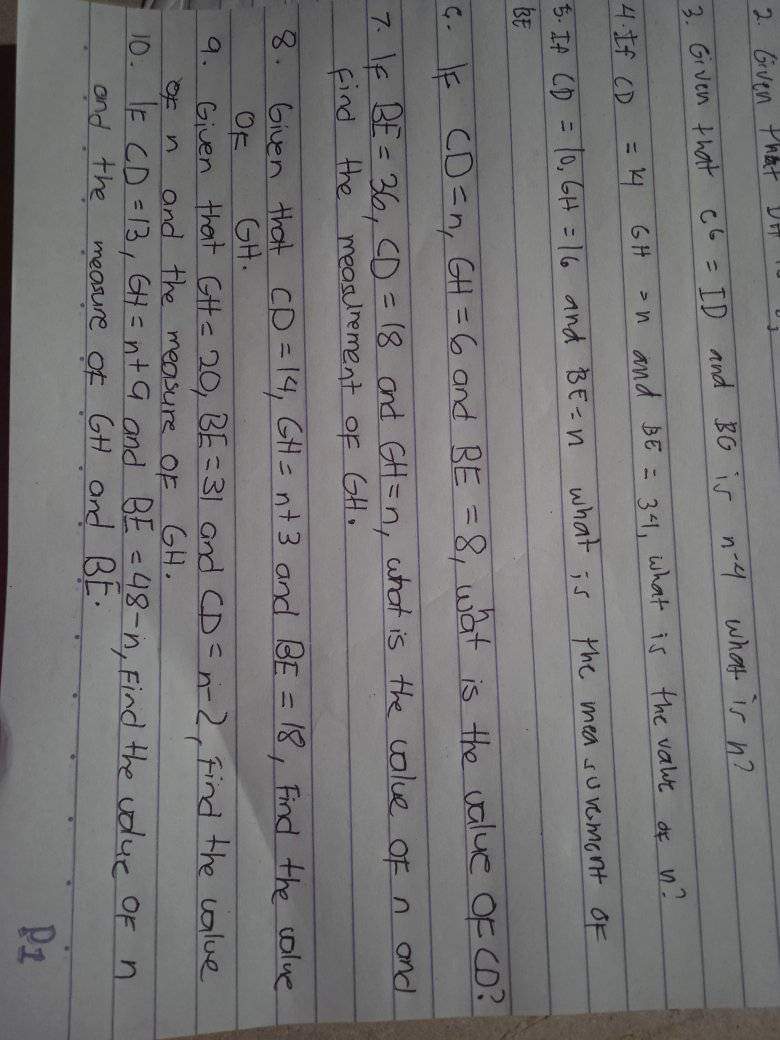 2. Given that
3. Given that CG = ID and BG is n-4 what is n?
4. If CD = 14 GH = n and BE = 34, what is the value of n?
5. If CD = 10, GH = 16 and BE = n what is the measurement of
BE
6. IF CD = n, GH = 6 and BE = 8, what is the value OF CD?
7. IF BE = 36, CD = 18 and GH = n, what is the value OF n and
find the measurement OF GH.
8. Given that CD = 14, GH = n+3 and BE = 18, Find the value
OF GH.
9. Given that GH = 20, BE = 31 and CD = n-2, Find the value
OF n and the measure OF GH.
10. IF CD = 13, GH = n+9 and BE = 48-n, Find the value OF n
and the measure OF GH and BE.